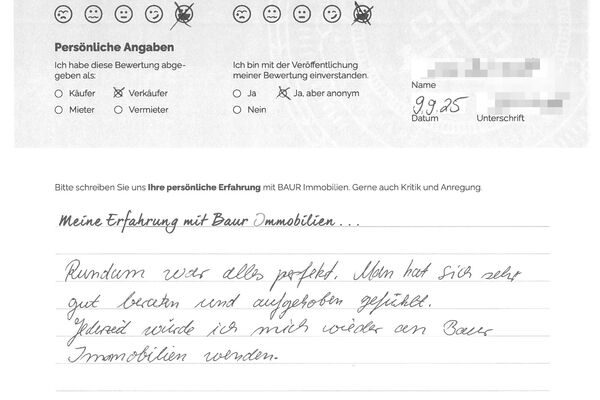 Persönliche Angaben
Ich habe diese Bewertung abge-
geben als:
Käufer
Verkäufer
Mieter
Vermieter
Ich bin mit der Veröffentlichung
meiner Bewertung einverstanden.
Ja
Ja, aber anonym
Nein
Name
9.9.25
Datum
Unterschrift
Bitte schreiben Sie uns Ihre persönliche Erfahrung mit BAUR Immobilien. Gerne auch Kritik und Anregung.
Meine Erfahrung mit Baur Immobilien...
Rundum war alles perfekt. Man hat sich sehr
gut beraten und aufgehoben gefühlt.
Jederzeit würde ich mich wieder an Baur
Immobilien wenden.